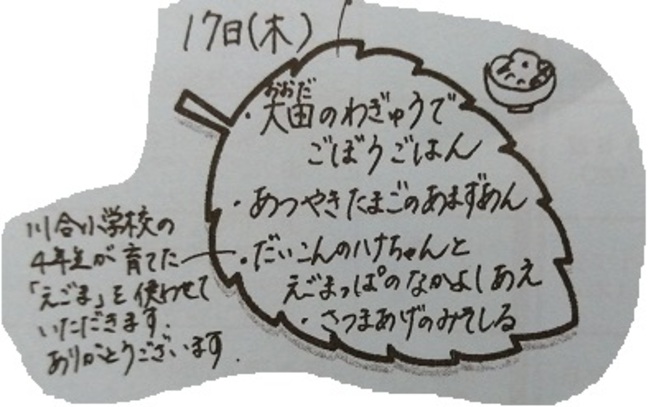 17日(木)
おおだ
・大田のわぎゅうで
ごぼうごはん
・あつやきたまごのあまずあん
・だいこんのハナちゃんと
えごまっぱのなかよしあえ
・さつまあげのみそしる
川合小学校の
4年生が育てた
「えごま」を使わせて
いただきます。
ありがとうございます.